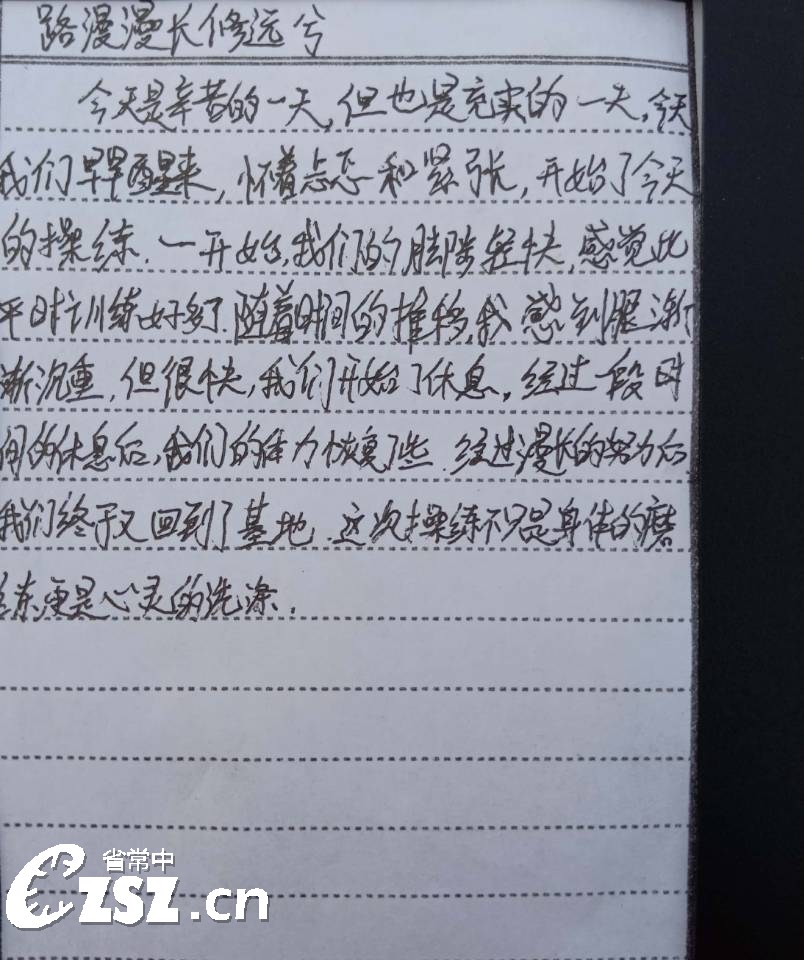 路漫漫长修远兮
今天是辛苦的一天,但也是充实的一天,今天
我们早早醒来,怀着忐忑和紧张,开始了今天
的操练.一开始,我们的脚步轻快,感觉比
平时训练好多了.随着时间的推移,我感到腿渐
渐沉重,但很快,我们开始了休息,经过一段时
间的休息后,我们的体力恢复了些.经过漫长的努力后
我们终于又回到了基地.这次操练不只是身体的磨
练更是心灵的洗涤.
省常中
CZSZ.cn